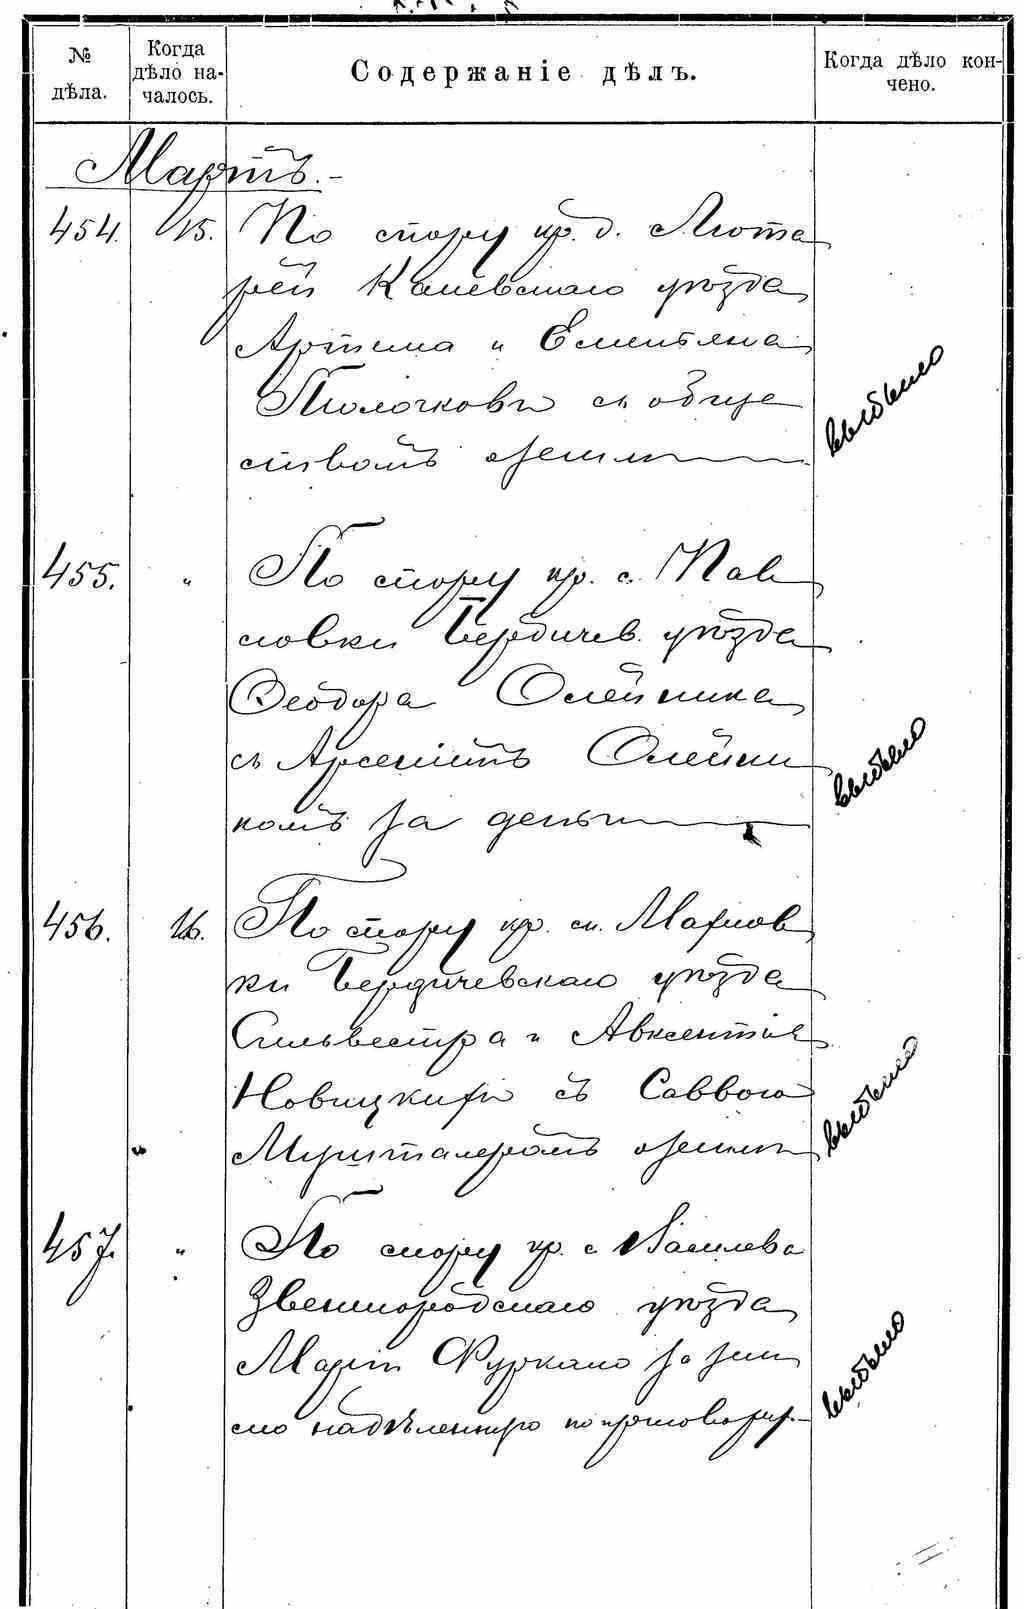 № дѣла.
Когда дѣло на-
чалось.
Содержаніе дѣлъ.
Когда дѣло кон-
чено.
Мартъ.-
454. 15. По спору кр. д. Люта
рей Каневскаго уѣзда
Артема и Емельяна
съ обще
ствомъ о земли
выбыло
455. " По спору кр. с. Пав
ловки Бердичев. уѣзда
Ѳеодора Олейника
съ Арсеніемъ Олейни
комъ за деньги
выбыло
456. 16. По спору кр. м. Махнов
ки Бердичевскаго уѣзда
Сильвестра и Авксентія
Новицкихъ съ Саввою
о земли
выбыло
457. " По спору кр. с. Василева
Звенигородскаго уѣзда
Маріи за зем
лю надѣленную по приговору.-
выбыло